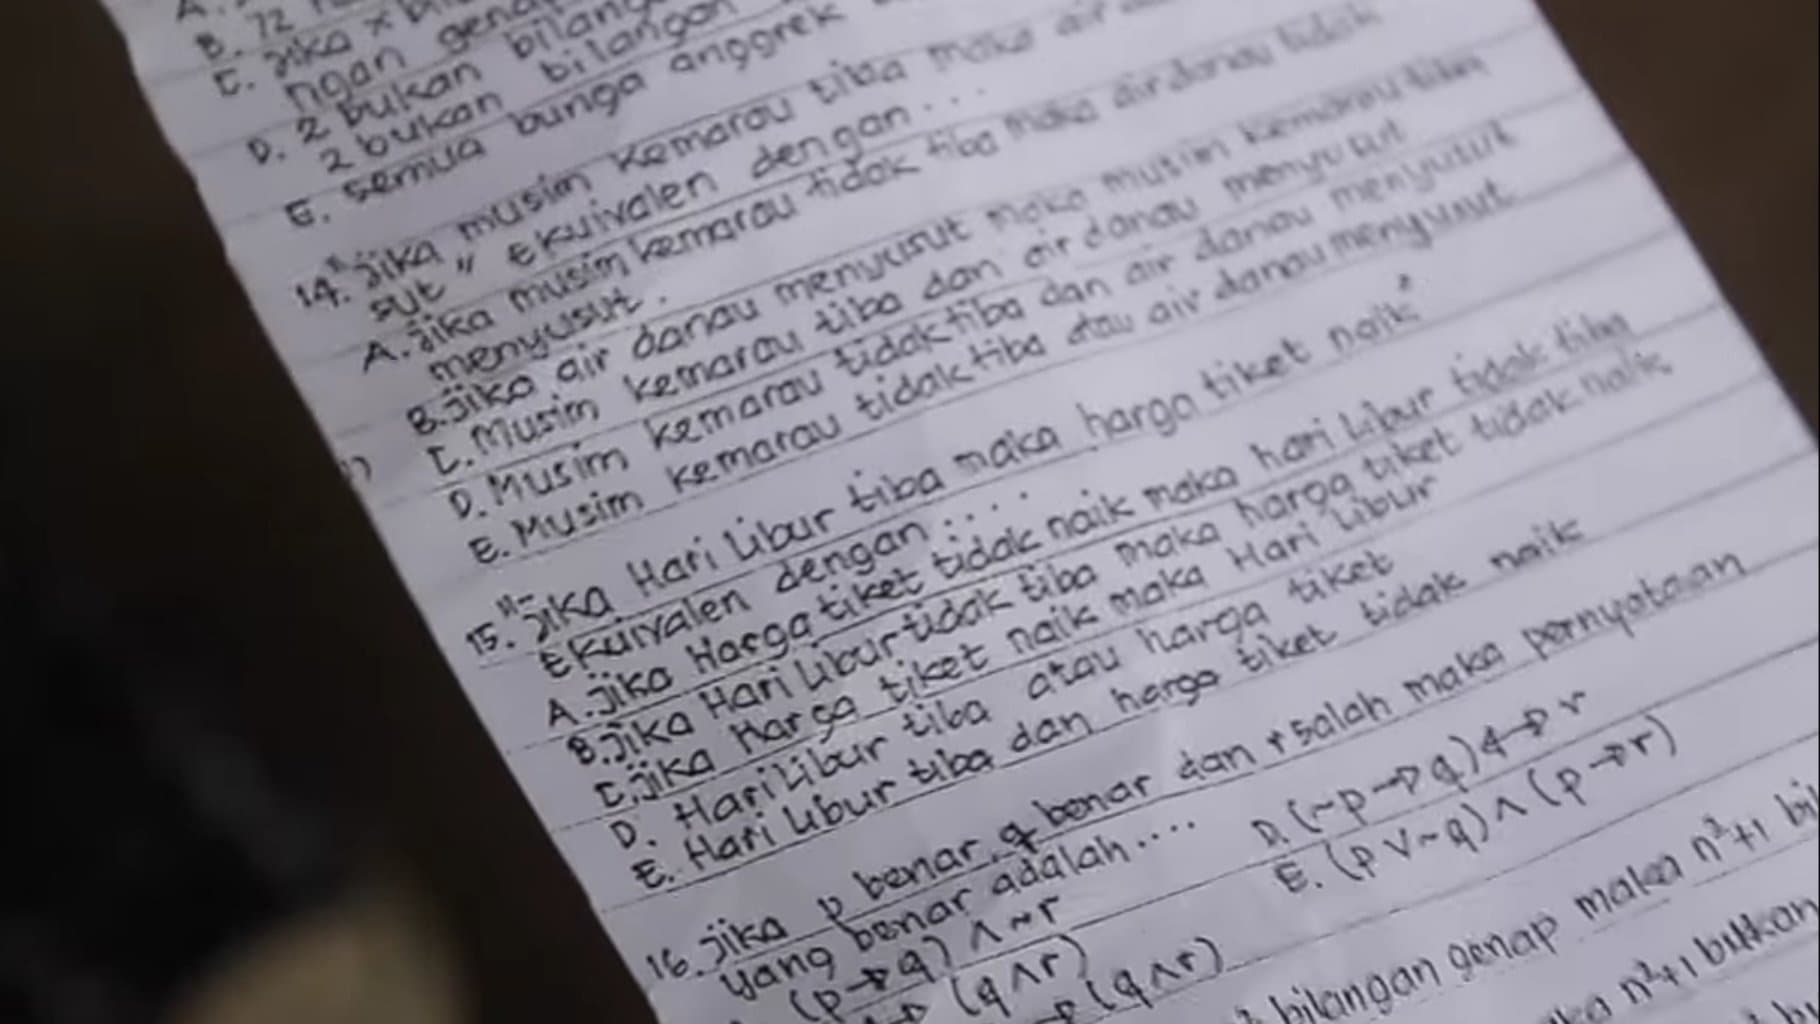 A.
B. 72
C. Jika x
ngan genap
D. 2 bukan bilangan
2 bukan bilangan
E. semua bunga anggrek
14. "Jika musim kemarau tiba maka air
sut" Ekuivalen dengan...
A. Jika musim kemarau tidak tiba maka air danau tidak
menyusut.
B. Jika air danau menyusut maka musim kemarau tiba
C. Musim kemarau tiba dan air danau menyusut
D. Musim kemarau tidak tiba dan air danau menyusut
E. Musim kemarau tidak tiba atau air danau menyusut
15. "Jika Hari Libur tiba maka harga tiket naik"
Ekuivalen dengan....
A. Jika Harga tiket tidak naik maka hari libur tidak tiba
B. Jika Hari libur tidak tiba maka harga tiket tidak naik
C. Jika Harga tiket naik maka Hari libur
D. Hari libur tiba atau harga tiket
E. Hari libur tiba dan harga tiket tidak naik
16. Jika p benar, q benar dan r salah maka pernyataan
yang benar adalah....
(p→q) ∧ ~r
(q∧r)
→(q∧r)
D. (~p→q)↔r
E. (p∨~q)∧(p→r)
bilangan genap maka n²+1 bil
n²+1 bukan